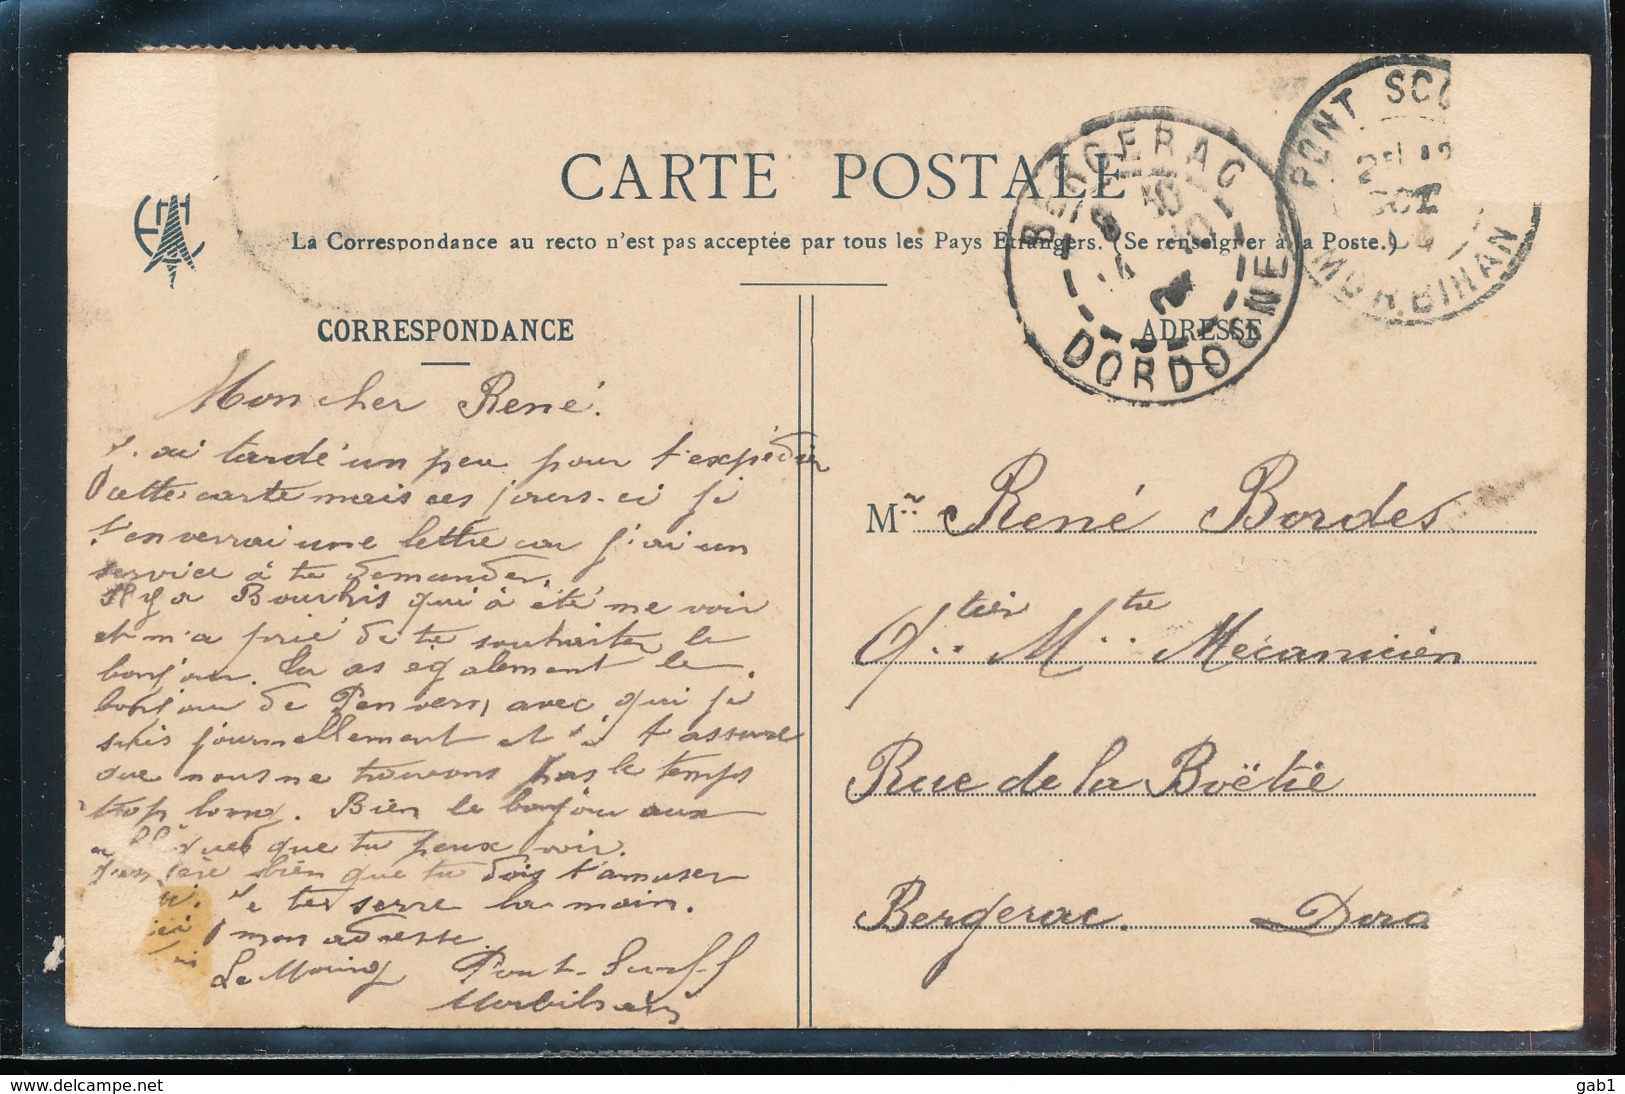 CARTE POSTALE
La Correspondance au recto n'est pas acceptée par tous les Pays Étrangers. (Se renseigner à la Poste.)
BERGERAC
DORDOGNE
PONT SCO
MORBIHAN
CORRESPONDANCE
Mon cher René.
J'ai tardé un peu pour t'expédier
cette carte mais ces jours-ci je
t'enverrai une lettre car j'ai un
service à te demander.
Il y a Bourhis qui à été me voir
et m'a prié de te souhaiter le
bonjour. Tu as également le
bonjour de Penvern, avec qui je
suis journellement et t'assure
que nous ne trouvons pas le temps
trop long. Bien le bonjour aux
que tu peux voir.
bien que tu dois t'amuser
Je te serre la main.
mon adresse
Le Mouing Pont-Scorff
Morbihan
ADRESSE
M.r René Bordes
Q.tier M.tre Mécanicien
Rue de la Boëtie
Bergerac. Dord
delcampe.net
gab1